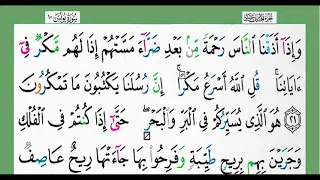 سُورَةُ يُونُسَ ١٠
وَإِذَآ أَذَقْنَا ٱلنَّاسَ رَحْمَةً مِّنۢ بَعْدِ ضَرَّآءَ مَسَّتْهُمْ إِذَا لَهُم مَّكْرٌ فِىٓ
ءَايَاتِنَا ۚ قُلِ ٱللَّهُ أَسْرَعُ مَكْرًا ۚ إِنَّ رُسُلَنَا يَكْتُبُونَ مَا تَمْكُرُونَ
٢١ هُوَ ٱلَّذِى يُسَيِّرُكُمْ فِى ٱلْبَرِّ وَٱلْبَحْرِ ۖ حَتَّىٰٓ إِذَا كُنتُمْ فِى ٱلْفُلْكِ
وَجَرَيْنَ بِهِم بِرِيحٍ طَيِّبَةٍ وَفَرِحُوا۟ بِهَا جَآءَتْهَا رِيحٌ عَاصِفٌ